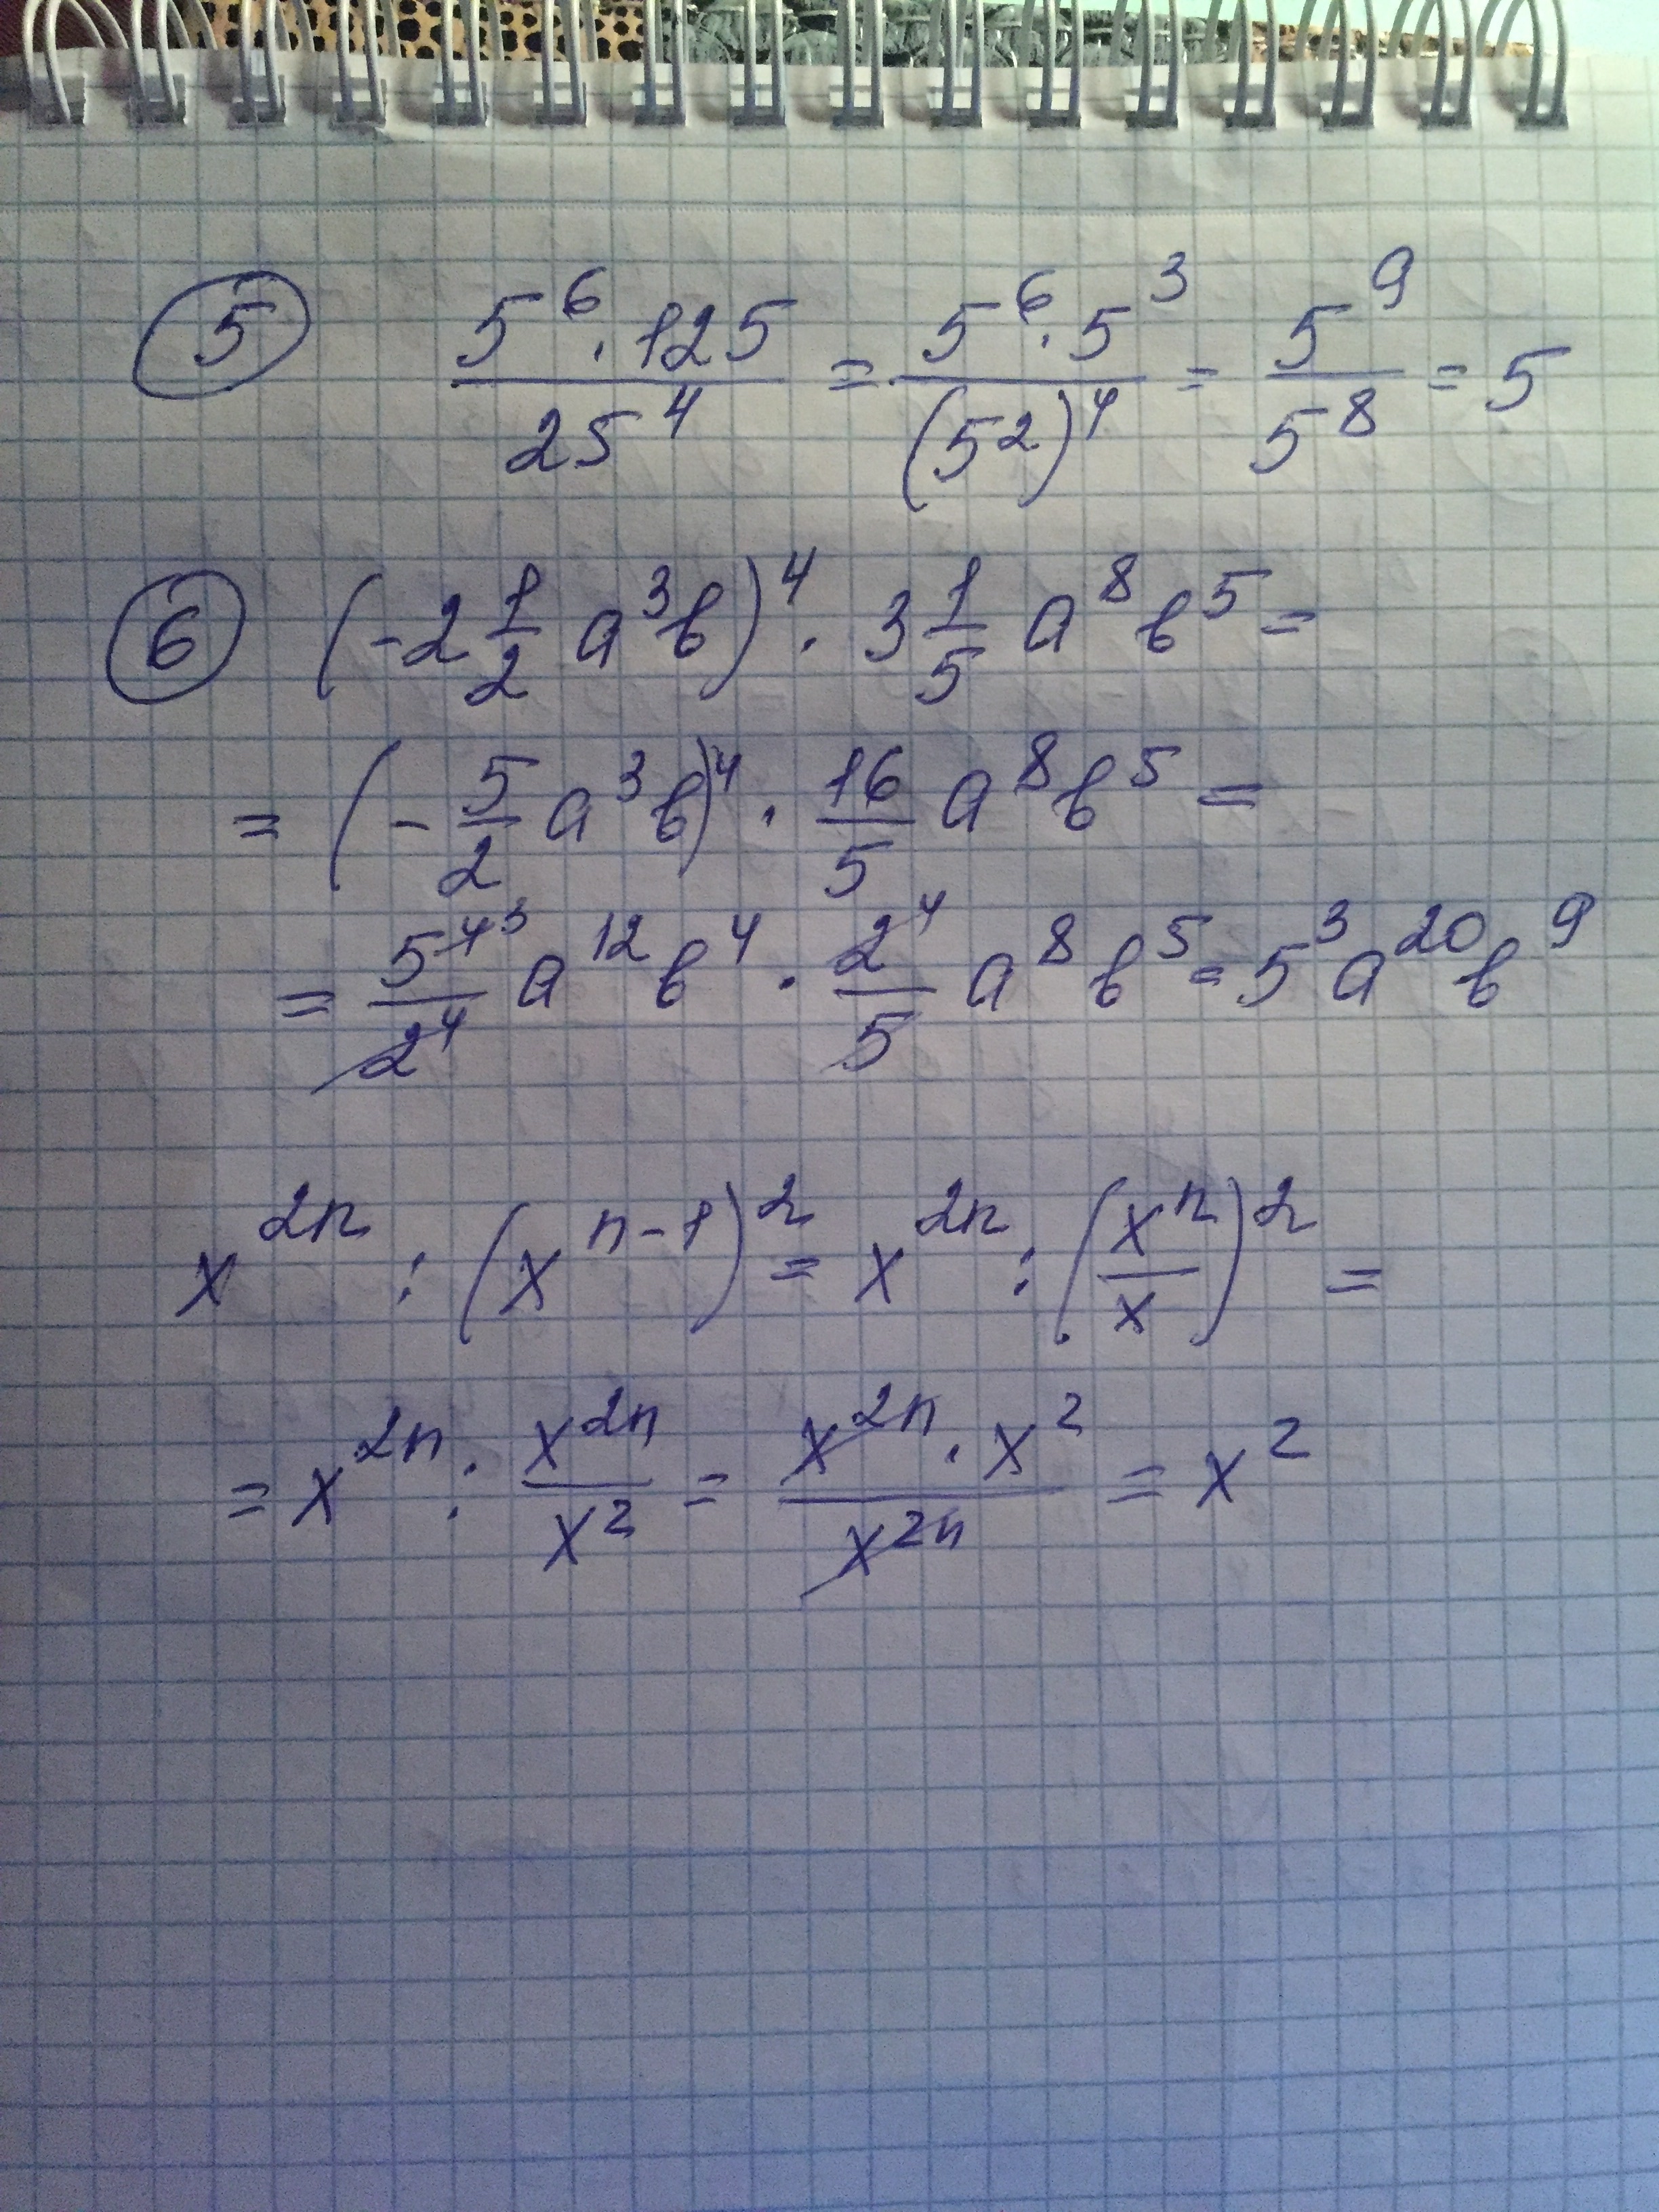 5 5⁶·125/25⁴ = 5⁶·5³/(5²)⁴ = 5⁹/5⁸ = 5
6 (-2 1/2 a³b)⁴ · 3 1/5 a⁸b⁵ =
= (-5/2 a³b)⁴ · 16/5 a⁸b⁵ =
= 5⁴ ³/2⁴ a¹²b⁴ · 2⁴/5 a⁸b⁵ = 5³a²⁰b⁹
x²ⁿ : (xⁿ⁻¹)² = x²ⁿ : (xⁿ/x)² =
= x²ⁿ : x²ⁿ/x² = x²ⁿ·x²/x²ⁿ = x²